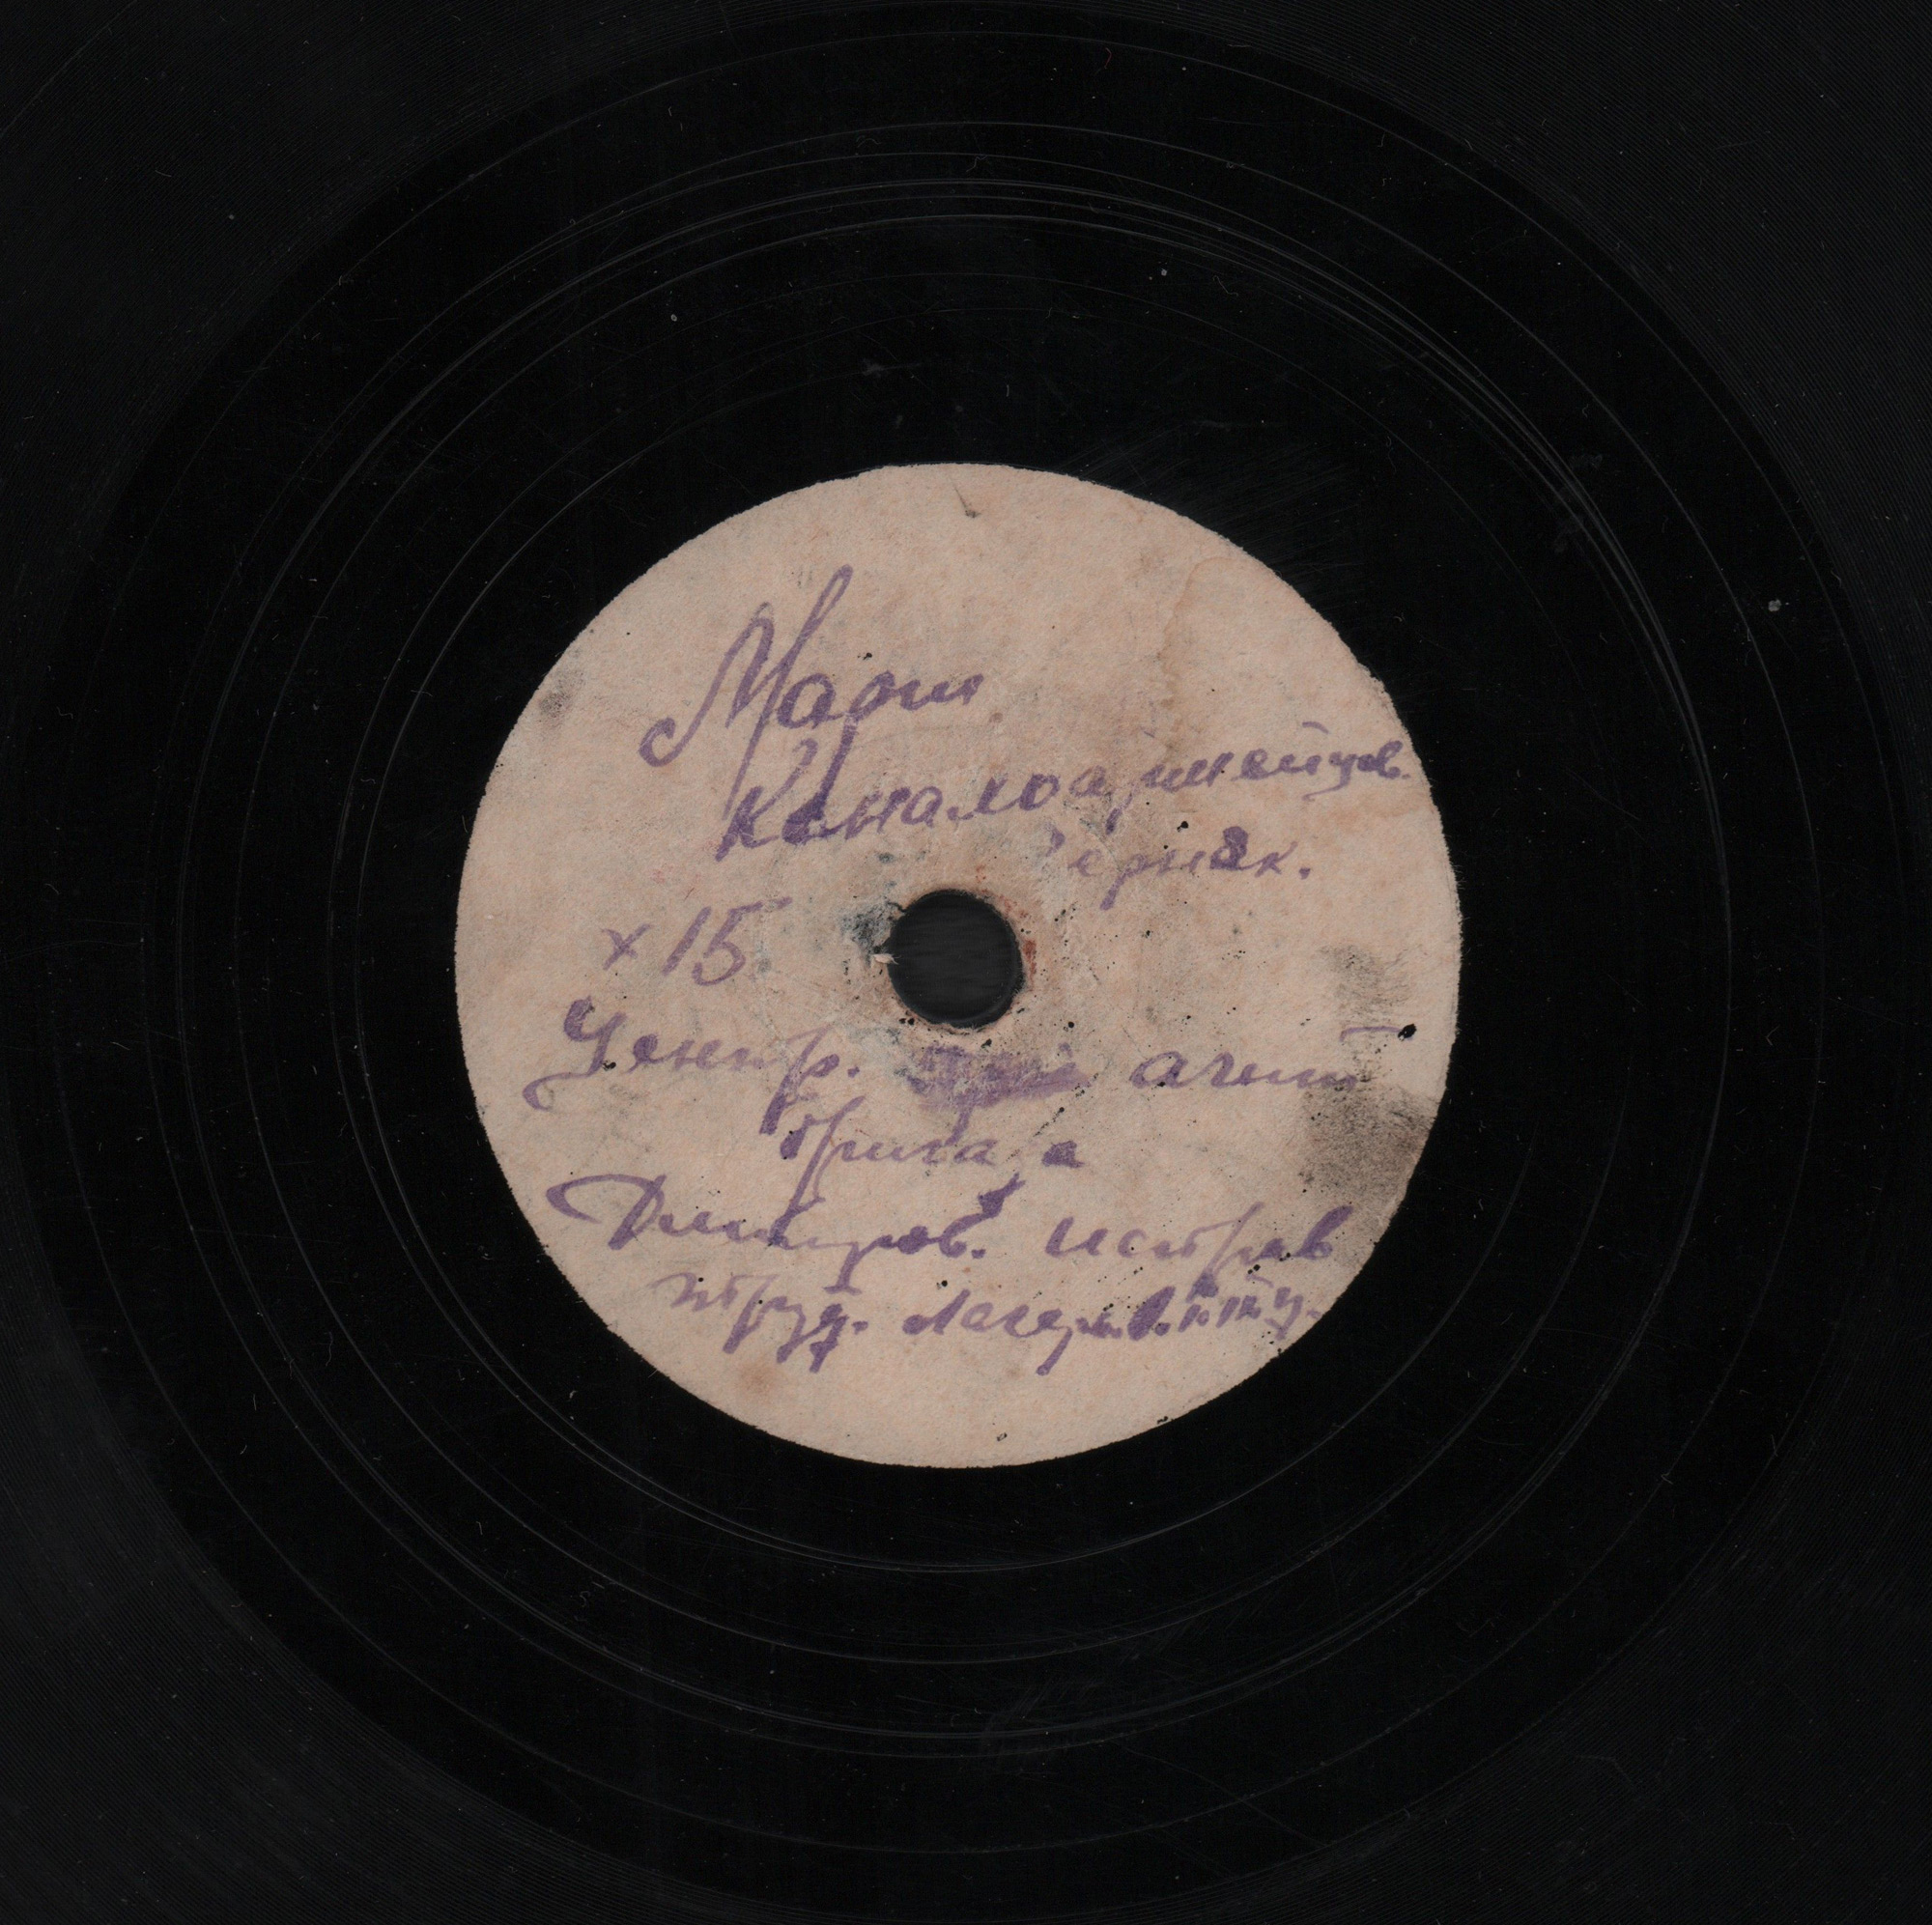 Марш
Каналоармейцев.
Черняк.
× 15
Центр. агит
бригада
Дмитров. Исправ
труд. Лагер.